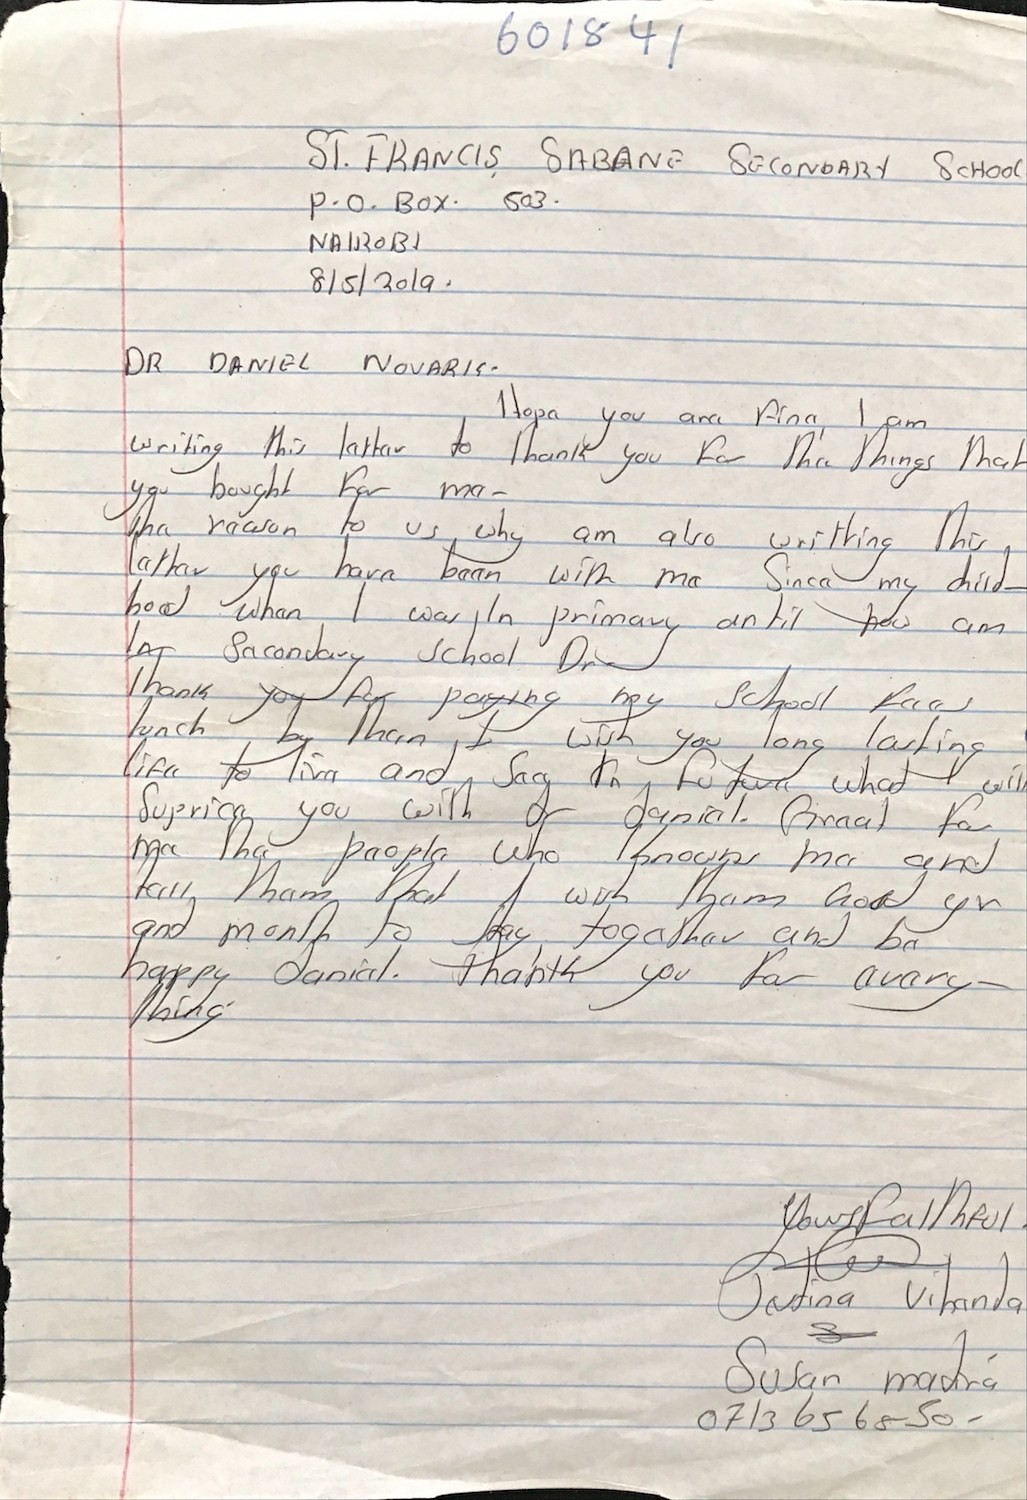 601841
ST. FRANCIS SABANE SECONDARY SCHOOL
P.O. BOX. 503.
NAIROBI
8/5/2019.
DR DANIEL NOVARIS.
Hope you are fine, I am
writing this letter to thank you for the things that
you bought for me-
the reason to us why am also writting this
letter you have been with me Since my child-
hood when I was In primary until now am
In Secondary School Dr
thank you for paying my school fees
lunch by then I wish you long lasting
life to live and see in future what I will
Suprice you with dr daniel. Greet for
me the people who knows me and
tell them that I wish them Good yr
and month to stay together and be
happy daniel. thank you for every-
thing.
Yours Faithful.
Vihenda
Susan
07136568-50-